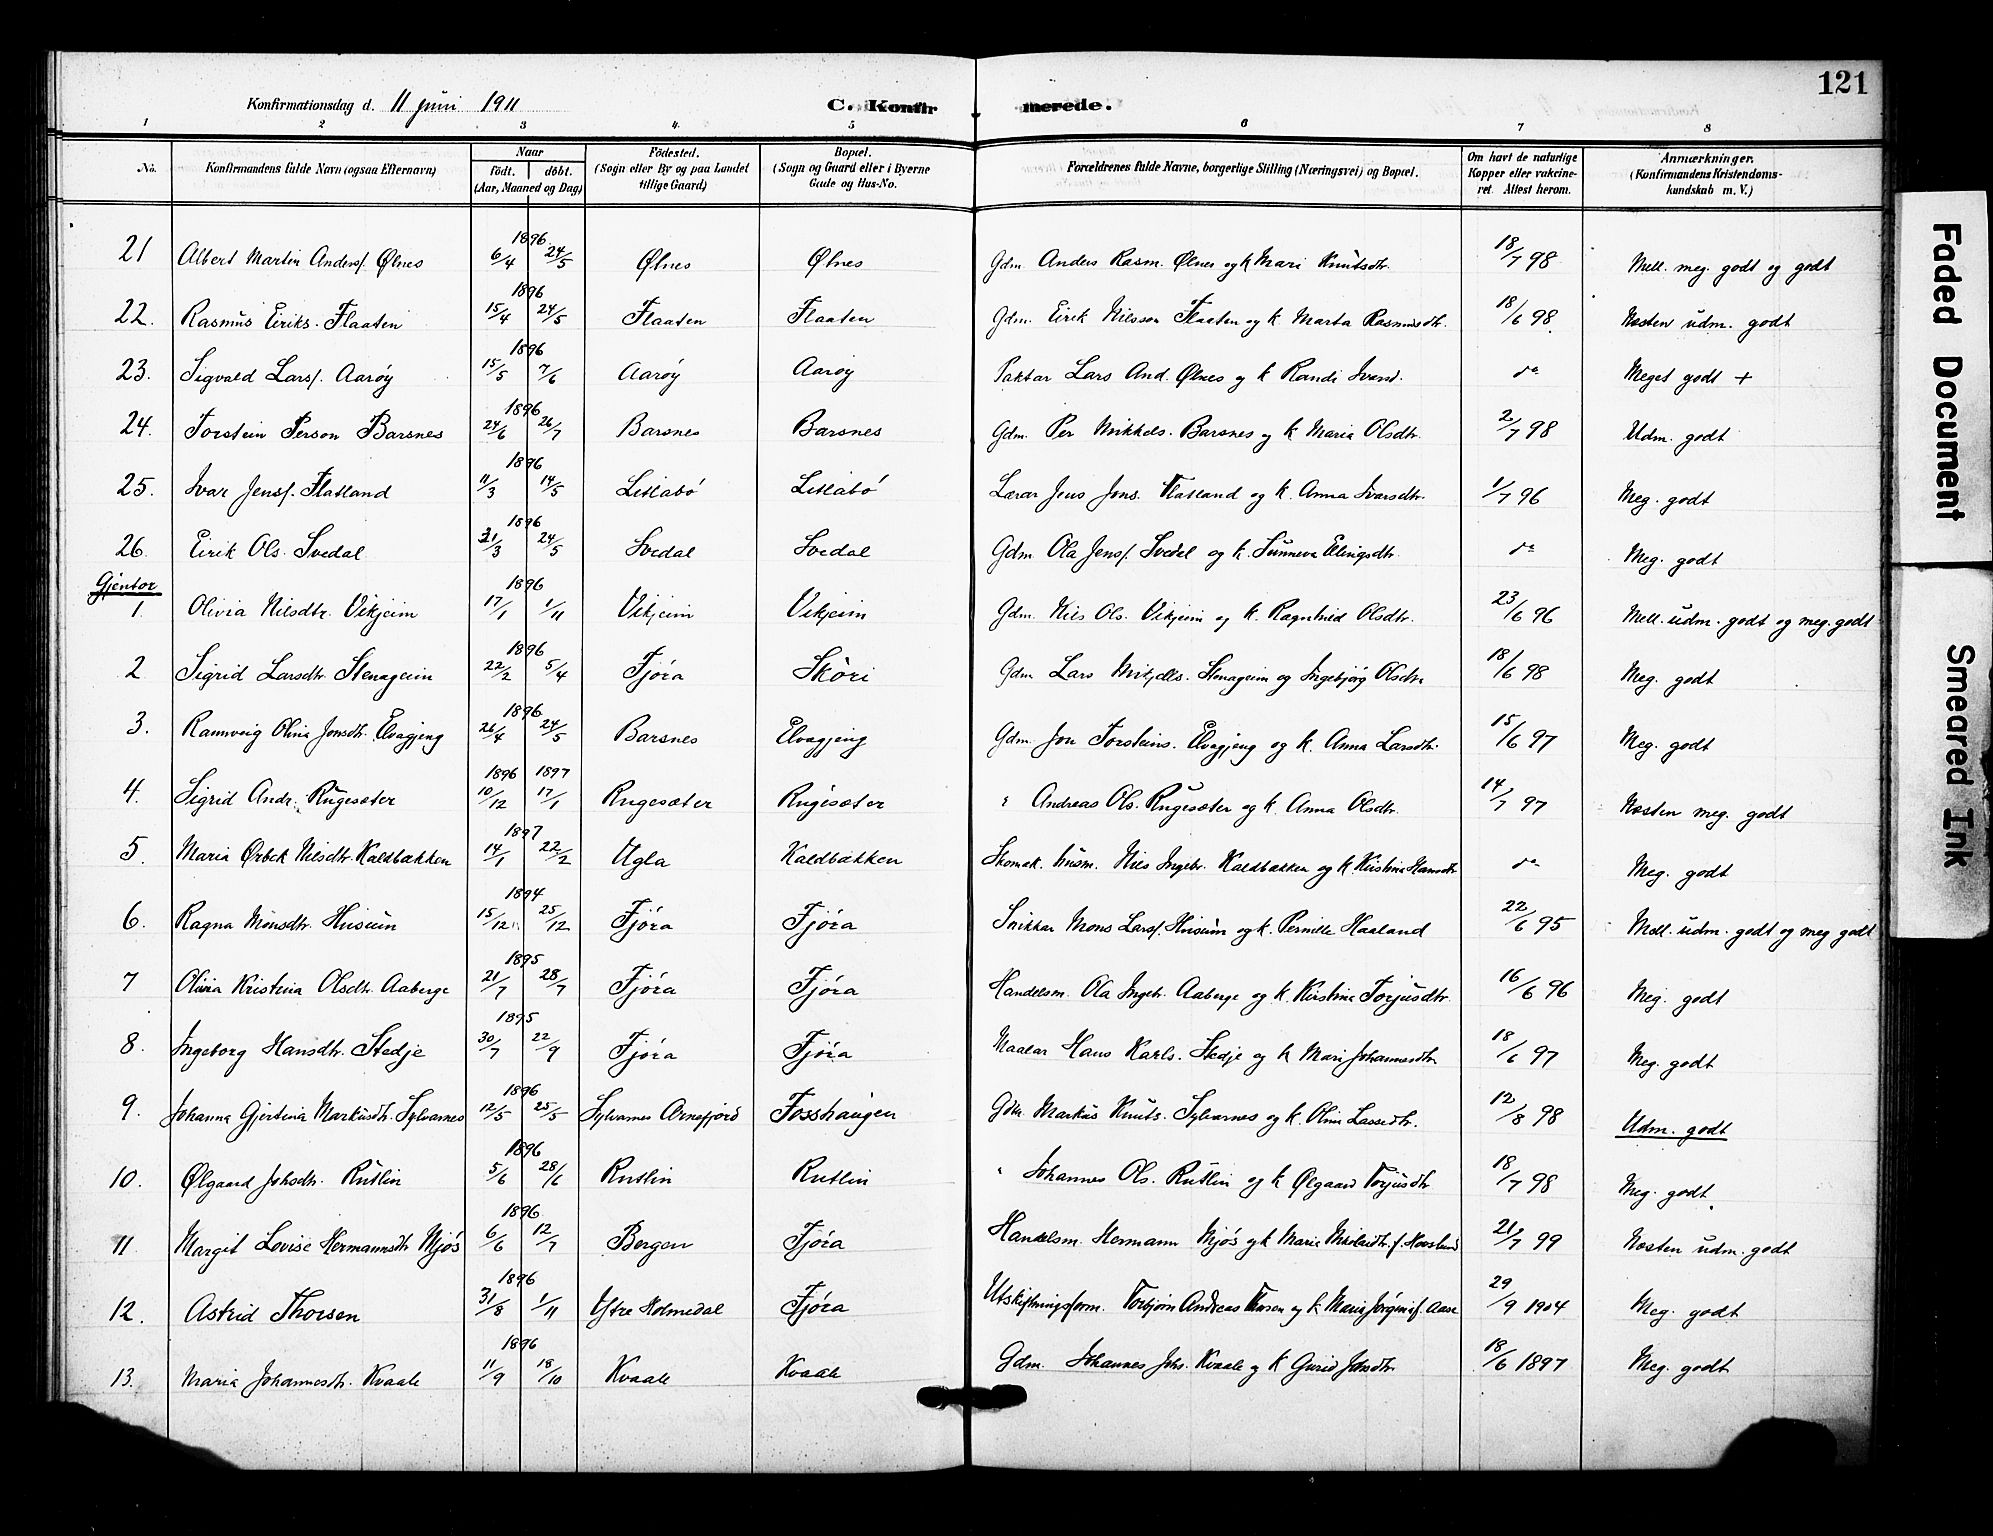 121
Konfirmationsdag d. 11 juni 1911 C. Konfir merede.
1 2 3 4 5 6 7 8
No. Konfirmandens fulde Navn (ogsaa Efternavn) Naar født. døbt. (Aar, Maaned og Dag) Födested. (Sogn eller By og paa Landet tillige Gaard) Bopæl. (Sogn og Gaard eller i Byerne Gade og Hus-No. Forældrenes fulde Navne, borgerlige Stilling (Næringsvei) og Bopæl. Om havt de naturlige Kopper eller vakcineret. Attest herom. Anmærkninger. (Konfirmandens Kristendomskundskab m. V.)
21 Albert Martin Andersf. Ølnes 1896 6/4 24/5 Ølnes Ølnes Gdm. Anders Rasm. Ølnes og k Mari Knutsdtr. 18/7 98 Mell. meg. godt og godt
22. Rasmus Eiriks. Flaaten 1896 15/4 24/5 Flaaten Flaaten Gdm. Eirik Nilsson Flaaten og k. Marta Rasmusdtr. 18/6 98. Næsten udm. godt
23. Sigvald Larsf. Aarøy 1896 15/5 7/6 Aarøy Aarøy Paktar Lars And. Ølnes og k Randi Ivarsd. do Meget godt +
24. Torstein Person Barsnes 1896 24/6 26/7 Barsnes Barsnes Gdm. Per Mikkels. Barsnes og k Maria Olsdtr. 2/7 98 Udm. godt
25. Ivar Jensf. Flatland 1896 11/3 14/5 Litlabø Litlabø Lærar Jens Jons. Flatland og k. Anna Ivarsdtr. 1/7 96 Meg. godt
26. Eirik Ols. Svedal 1896 31/3 24/5 Svedal Svedal Gdm. Ola Jensf. Svedal og k. Sunneva Ellingsdtr. do Meg. godt
Gjentor
1. Olivia Nilsdtr. Vikjeim 1896 17/1 1/11 Vikjeim Vikjeim Gdm. Nils Ols. Vikjeim og k. Ragnhild Olsdtr. 23/6 96 Mell. udm. godt og meg. godt
2 Sigrid Larsdtr. Stenageim 1896 22/2 5/4 Fjøra Skøri Gdm. Lars Mikjells. Stenageim og Ingebjørg Olsdtr 18/6 98 Meg. godt
3. Ramveig Olina Jonsdtr. Elvagjeng 1896 26/4 24/5 Barsnes Elvagjeng Gdm. Jon Torsteins. Elvagjeng og k. Anna Larsdtr. 15/6 97 Meg. godt
4. Sigrid Andr. Rugesæter 1896 10/12 1897 17/1 Rugesæter Rugesæter " Andreas Ols. Rugesæter og k. Anna Olsdtr. 14/7 97 Næsten meg. godt
5. Maria Ørbek Nilsdtr. Kaldbakken 1897 14/1 22/2 Ugla Kaldbakken Skomak. husm. Nils Ingebr. Kaldbakken og k. Kristine Hansdtr do Meg. godt
6. Ragna Monsdtr. Husum 1894 15/12 25/12 Fjøra Fjøra Snikkar Mons Larsf. Husum og k. Pernille Haaland 22/6 95 Mell. udm. godt og meg godt
7 Olivia Kristina Olsdtr. Aaberge 1895 21/7 28/7 Fjøra Fjøra Handelsm. Ola Ingebr. Aaberge og k. Kristine Torjusdtr. 16/6 96 Meg. godt
8. Ingeborg Hansdtr. Stedje 1895 30/7 22/9 Fjøra Fjøra Maalar Hans Karls. Stedje og k Mari Johannesdtr 18/6 97 Meg. godt
9. Johanna Gjertina Markusdtr. Sylvarnes 1896 12/5 25/5 Sylvarnes Arnefjord Fosshaugen Gdm. Markus Knuts. Sylvarnes og k. Olina Lassedtr. 12/8 98 Udm. godt
10. Ølgaard Johsdtr. Rutlin 1896 5/6 28/6 Rutlin Rutlin " Johannes Ols. Rutlin og k Ølgaard Torjusdtr 18/7 98 Meg. godt
11. Margit Lovise Hermannsdtr Mjøs 1896 6/6 12/7 Bergen Fjøra Handelsm. Hermann Mjøs og k Marie Nikolaidtr. f. 21/7 99 Næsten udm. godt
12. Astrid Thorsen 1896 31/8 1/11 Ytre Holmedal Fjøra Utskiftningsform. Torbjørn Andreas Thorsen og k. Marie f. Aase 29/9 1904 Meg. godt
13. Maria Johannesdtr. Kvaale 1896 11/9 18/10 Kvaale Kvaale Gdm. Johannes Johs. Kvaale og k Gurid Johsdtr. 18/6 1897 Meg. godt
Faded Document
Smeared Ink